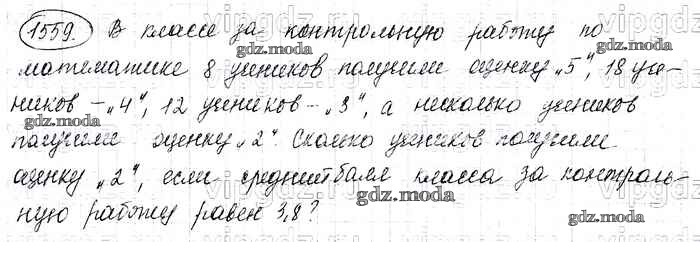 1559. В классе за контрольную работу по
математике 8 учеников получили оценку „5", 18 уче-
ников – „4", 12 учеников – „3", а несколько учеников
получили оценку „2". Сколько учеников получили
оценку „2", если средний балл класса за контроль-
ную работу равен 3,8?
gdz.moda
gdz.moda
gdz.moda
gdz.moda
gdz.moda
gdz.moda
gdz.moda